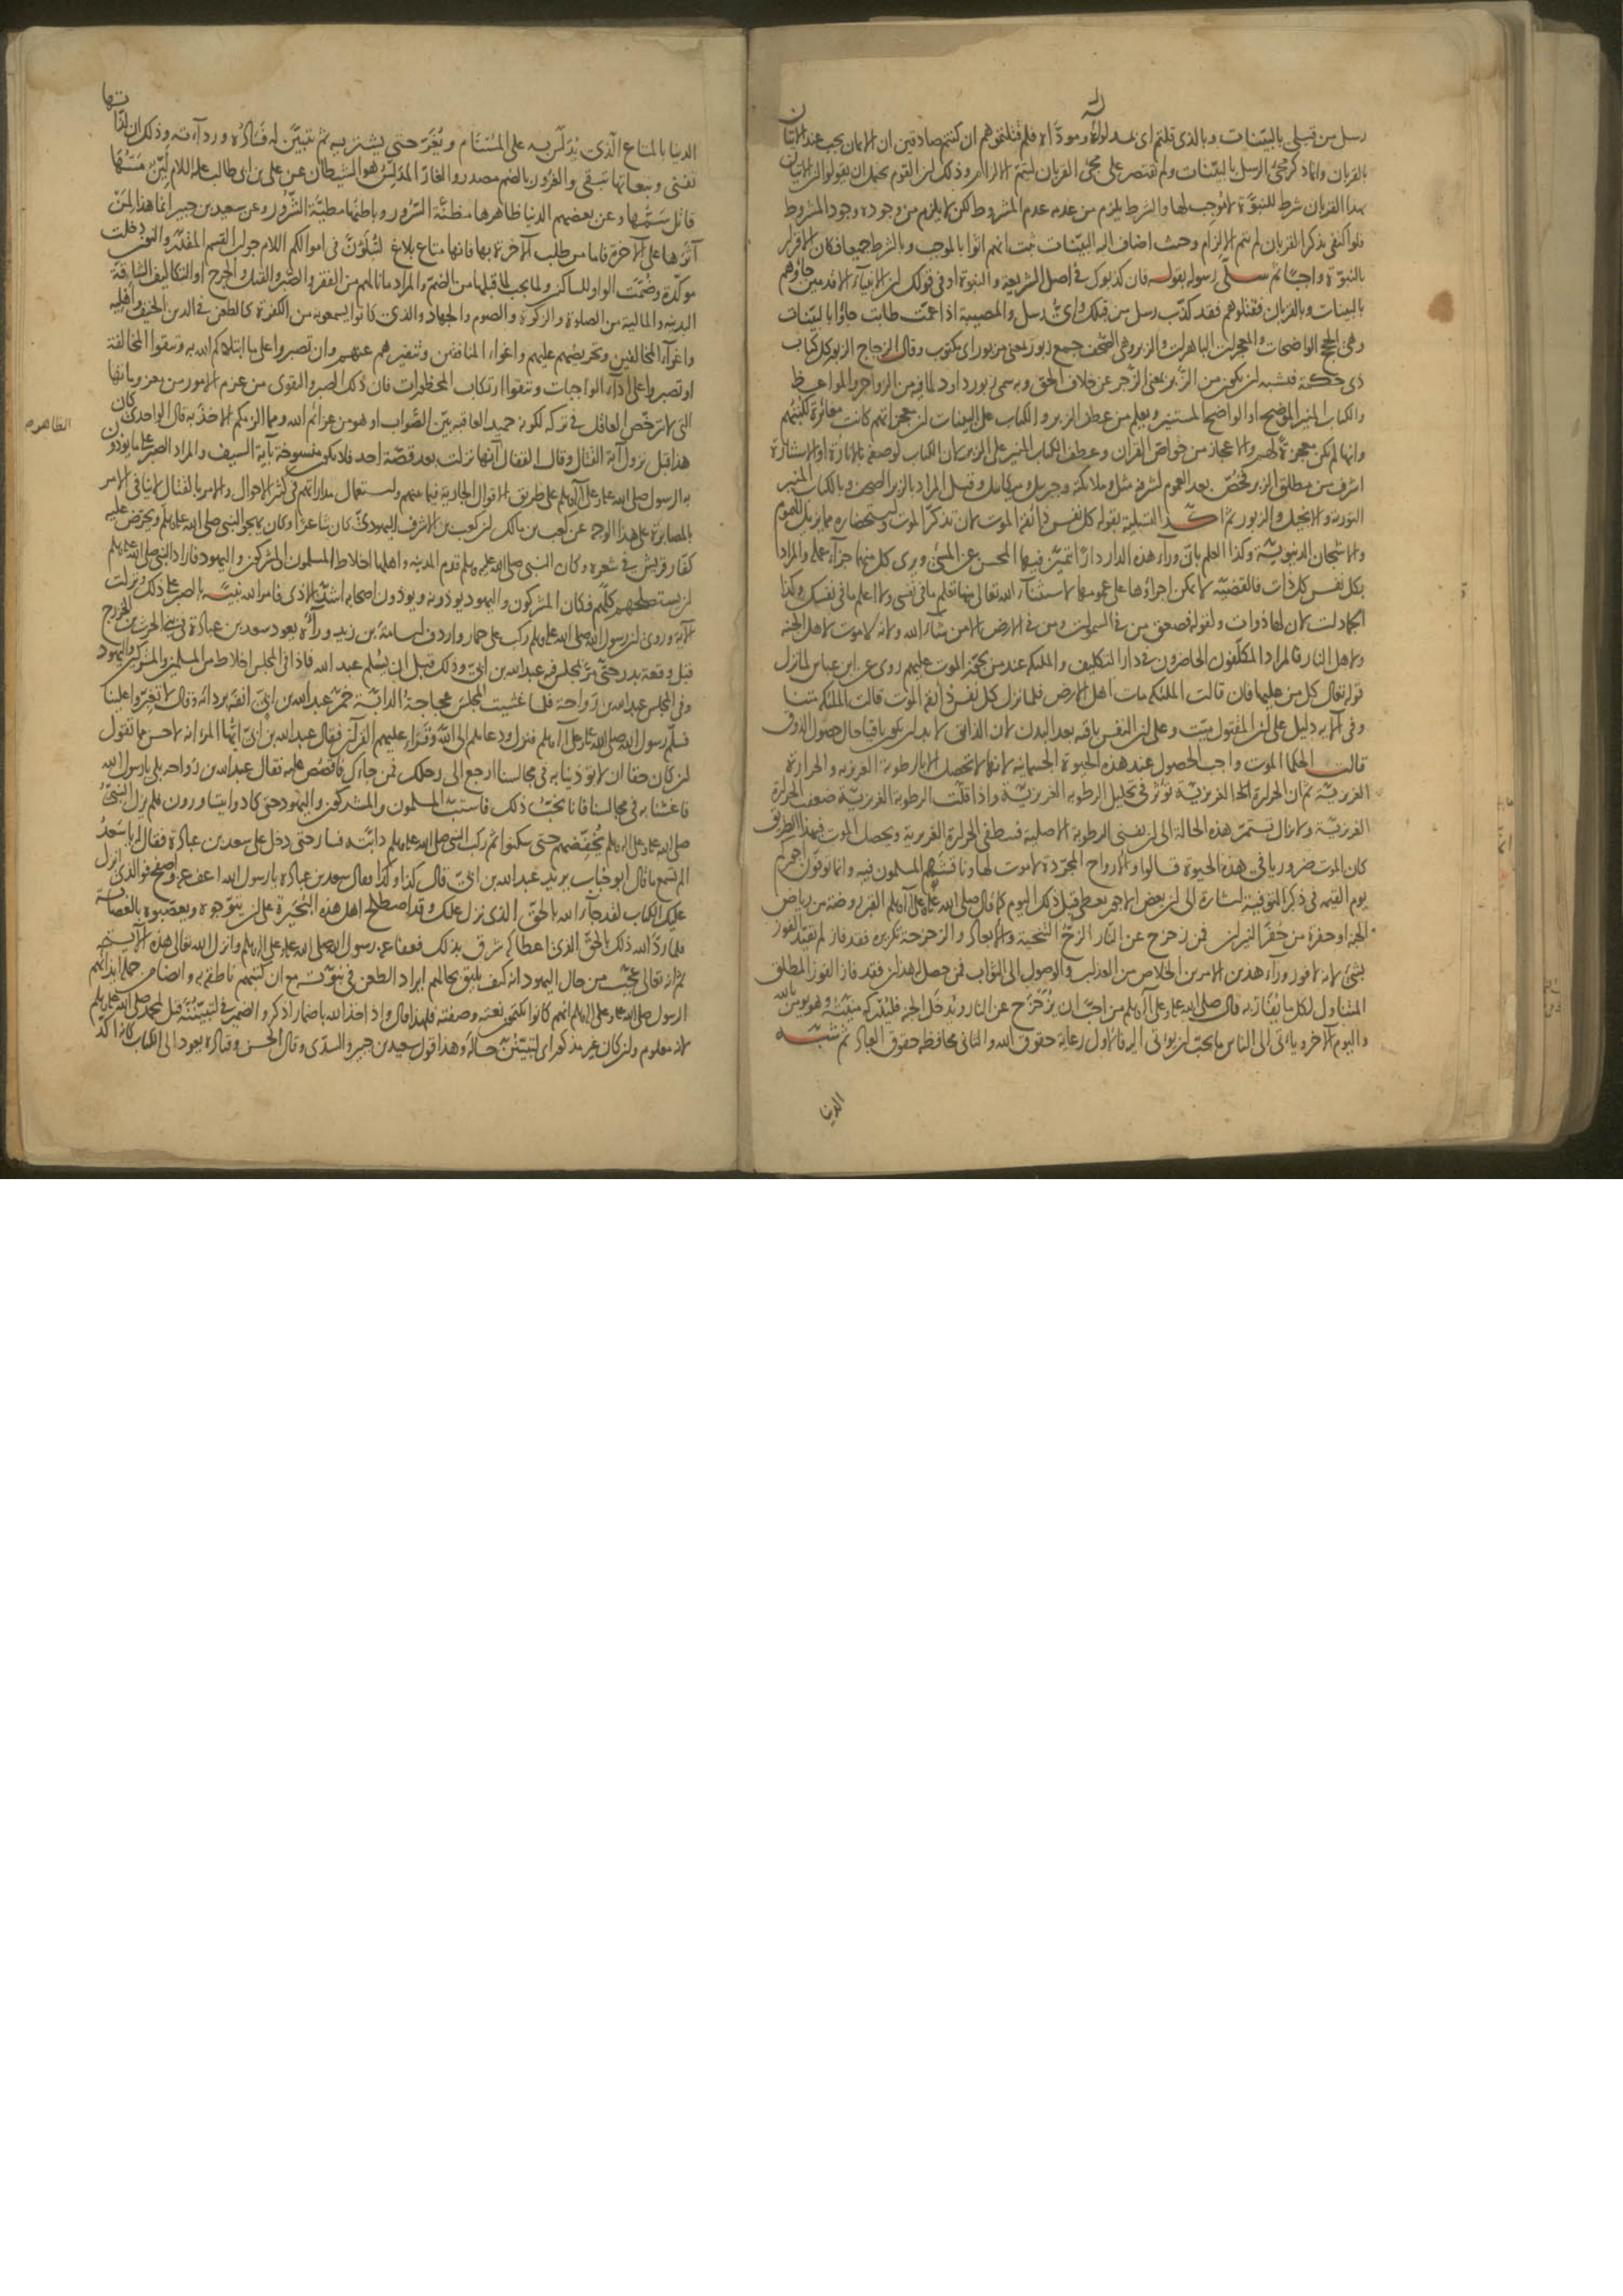 رسل من قبلي بالبينات وبالذي قلتم اى مدلوله ومؤداه فلم قتلتموهم ان كنتم صادقين ان الايمان يجب عند الاتيان
بالقربان وانما ذكر مجئ الرسل بالبينات ولم يقتصر على مجئ القربان ليتم الالزام وذلك ان القوم يحتمل ان يقولوا ان الاتيان
بهذا القربان شرط للنبوة لا موجب لها والشرط يلزم من عدمه عدم المشروط لكن لا يلزم من وجوده وجود المشروط
فلو اكتفى بذكر القربان لم يتم الالزام وحيث اضاف اليه البينات ثبت انهم اتوا بالموجب وبالشرط جميعا فكان الاقرار
بالنبوة واجبا ثم سلى رسوله بقوله فان كذبوك في اصل الشريعة والنبوة او في قولك ان الانبياء الاقدمين جاؤهم
بالبينات وبالقربان فقتلوهم فقد كذب رسل من قبلك واى رسل والمصيبة اذا عمت طابت جاؤا بالبينات
وهي الحجج الواضحات والمعجزات الباهرات والزبر وهي الصحف جمع زبور بمعنى مزبور اى مكتوب وقال الزجاج الزبور كل كتاب
ذى حكمة فيشبه ان يكون من الزبر بمعنى الزجر عن خلاف الحق وبه سمى زبور داود لما فيه من الزواجر والمواعظ
والكتاب المنير الموضح او الواضح المستنير ويعلم من عطف الزبر والكتاب على البينات ان معجزاتهم كانت مغائرة لكتبهم
وانها لم تكن معجزة لهم والاعجاز من خواص القرآن وعطف الكتاب المنير على الزبر لان الكتاب لوصفه بالانارة او الاستنارة
اشرف من مطلق الزبر فخص بعد العموم لشرفه مثل وملائكته وجبريل وميكائيل وقيل المراد بالزبر الصحف وبالكتاب المنير
التورية والانجيل والزبور ثم اكد التسلية بقوله كل نفس ذائقة الموت لان تذكر الموت واستحضاره مما يزيل الهموم
والاشجان الدنيوية وكذا العلم بان وراء هذه الدار دارا يتميز فيها المحسن عن المسئ ويرى كل منهما جزاء عمله والمراد
بكل نفس كل ذات فالقضية لا يمكن اجراؤها على عمومها لاستثناء الله تعالى منها تعلم ما في نفسي ولا اعلم ما في نفسك وكذا
الجمادات لان لها ذوات ولقوله فصعق من في السموات ومن في الارض الا من شاء الله ولانه لا موت لاهل الجنة
ولاهل النار فالمراد المكلفون الحاضرون في دار التكليف والملئكة عند من يجوز الموت عليهم روى عن ابن عباس لما نزل
قوله تعالى كل من عليها فان قالت الملئكة مات اهل الارض فلما نزل كل نفس ذائقة الموت قالت الملئكة متنا
وفي الآية دليل على ان المقتول ميت وعلى ان النفس باقية بعد البدن لان الذائق لا بد ان يكون باقيا حال حصول الذوق
قالت الحكما الموت واجب الحصول عند هذه الحيوة الجسمانية لانها لا تحصل الا بالرطوبة الغريزية والحرارة
الغريزية ثم ان الحرارة الغريزية تؤثر في تحليل الرطوبة الغريزية واذا قلت الرطوبة الغريزية ضعفت الحرارة
الغريزية ولا يزال تستمر هذه الحالة الى ان يفنى الرطوبة الاصلية فينطفى الحرارة الغريزية ويحصل الموت فبهذا الطريق
كان الموت ضروريا في هذه الحيوة قالوا والارواح المجردة لا موت لها وناقشهم المسلمون فيه وانما توفون اجوركم
يوم القيمة في ذكر التوفية اشارة الى ان بعض الاجور يعطى قبل ذلك اليوم كما قال صلى الله عليه وعلى آله وسلم القبر روضة من رياض
الجنة او حفرة من حفر النيران فمن زحزح عن النار الزح التنحية والابعاد والزحزحة تكريره فقد فاز لم يقيد الفوز
بشئ لانه لا فوز وراء هذين الامرين الخلاص من العذاب والوصول الى الثواب فمن حصل له هذان فقد فاز الفوز المطلق
المتناول لكل ما يفاز به قال صلى الله عليه وعلى آله وسلم من احب ان يزحزح عن النار ويدخل الجنة فليدركه منيته وهو يؤمن بالله
واليوم الآخر ويأتى الى الناس ما يحب ان يؤتى اليه فالاول رعاية حقوق الله والثانى محافظة حقوق العباد ثم شبه
الدنيا
الدنيا بالمتاع الذى يدلس به على المستام ويغر حتى يشتريه ثم يتبين له فساده ورداءته وذلك ان لذاتها
تفنى وتبعاتها تبقى والغرور بالضم مصدر والغار المدلس هو الشيطان عن على بن ابى طالب عليه السلام لين مسها
قاتل سمها وعن بعضهم الدنيا ظاهرها مظنة السرور وباطنها مطية الشرور وعن سعيد بن جبير انما هذا لمن
آثرها على الآخرة فاما من طلب الآخرة بها فانها متاع بلاغ لتبلون في اموالكم اللام جواب القسم المقدر والنون دخلت
مؤكدة وضمت الواو للساكنين ولما يجب لما قبلها من الضم والمراد ما نالهم من الفقر والضر والقتل والجرح او التكاليف الشاقة
البدنية والمالية من الصلوة والزكوة والصوم والجهاد والذى كانوا يسمعونه من الكفرة كالطعن في الدين الحنيف واهله
واغراء المخالفين وتحريضهم عليهم واغواء المنافقين وتنفيرهم عنهم وان تصبروا على ما ابتلاكم الله به وتتقوا المخالفة
او تصبروا على اداء الواجبات وتتقوا ارتكاب المحظورات فان ذلك الصبر والتقوى من عزم الامور من معزوماتها
التى لا ترخص العاقل في تركه لكونه حميد العاقبة بين الصواب او هو من عزائم الله ومما الزمكم الاخذ به قال الواحدى كان
هذا قبل نزول آية القتال وقال القفال انها نزلت بعد قصة احد فلا يكون منسوخة بآية السيف والمراد الصبر على ما يؤذون
به الرسول صلى الله عليه وعلى آله وسلم على طريق الاقوال الجارية فيما بينهم واستعمال مداراتهم في اكثر الاحوال والامر بالقتال لا ينافى الامر
بالمصابرة على هذا الوجه عن كعب بن مالك ان كعب بن الاشرف اليهودى كان شاعرا وكان يهجو النبى صلى الله عليه وسلم ويحرض عليه
كفار قريش في شعره وكان النبى صلى الله عليه وسلم قدم المدينة واهلها اخلاط المسلمون والمشركون واليهود فاراد النبى صلى الله عليه وسلم
ان يستصلحهم كلهم فكان المشركون واليهود يؤذونه ويؤذون اصحابه اشد الاذى فامر الله نبيه بالصبر على ذلك ونزلت
الآية وروى ان رسول الله صلى الله عليه وسلم ركب على حمار واردف اسامة بن زيد وراءه يعود سعد بن عبادة في بنى الحرث بن الخزرج
قبل وقعة بدر حتى مر بمجلس فيه عبد الله بن ابى وذلك قبل ان يسلم عبد الله فاذا في المجلس اخلاط من المسلمين والمشركين واليهود
وفي المجلس عبد الله بن رواحة فلما غشيت المجلس عجاجة الدابة خمر عبد الله بن ابى انفه بردائه وقال لا تغبروا علينا
فسلم رسول الله صلى الله عليه وعلى آله وسلم فنزل ودعاهم الى الله وقرأ عليهم القرآن فقال عبد الله بن ابى ايها المرء انه لاحسن مما تقول
ان كان حقا ان لا تؤذينا به في مجالسنا ارجع الى رحلك فمن جاءك فاقصص عليه فقال عبد الله بن رواحة بلى يا رسول الله
فاغشنا به في مجالسنا فانا نحب ذلك فاستب المسلمون والمشركون واليهود حتى كادوا يتساورون فلم يزل النبى
صلى الله عليه وعلى آله وسلم يخفضهم حتى سكنوا ثم ركب النبى صلى الله عليه وسلم دابته فسار حتى دخل على سعد بن عبادة فقال يا سعد
الم تسمع ما قال ابو حباب يريد عبد الله بن ابى قال كذا وكذا فقال سعد بن عبادة يا رسول الله اعف عنه واصفح فوالذى انزل
عليك الكتاب لقد جاء الله بالحق الذى نزل عليك وقد اصطلح اهل هذه البحيرة على ان يتوجوه ويعصبوه بالعصابة
فلما رد الله ذلك بالحق الذى اعطاكه شرق بذلك فعفا عنه رسول الله صلى الله عليه وعلى آله وسلم وانزل الله تعالى هذه الآية
ثم انه تعالى عجب من حال اليهود انه كيف يليق بحالهم ايراد الطعن في نبوته مع ان كتبهم ناطقة به وايضا من جملة ايذائهم
الرسول صلى الله عليه وعلى آله وسلم انهم كانوا يكتمون نعته وصفته فلهذا قال واذ اخذ الله باضمار اذكر والضمير في لتبيننه قيل لمحمد صلى الله عليه وسلم
لانه معلوم وان كان غير مذكور اى لتبينن حاله وهذا قول سعيد بن جبير والسدى وقال الحسن وقتادة يعود الى الكتاب كانه اكد
الظاهره